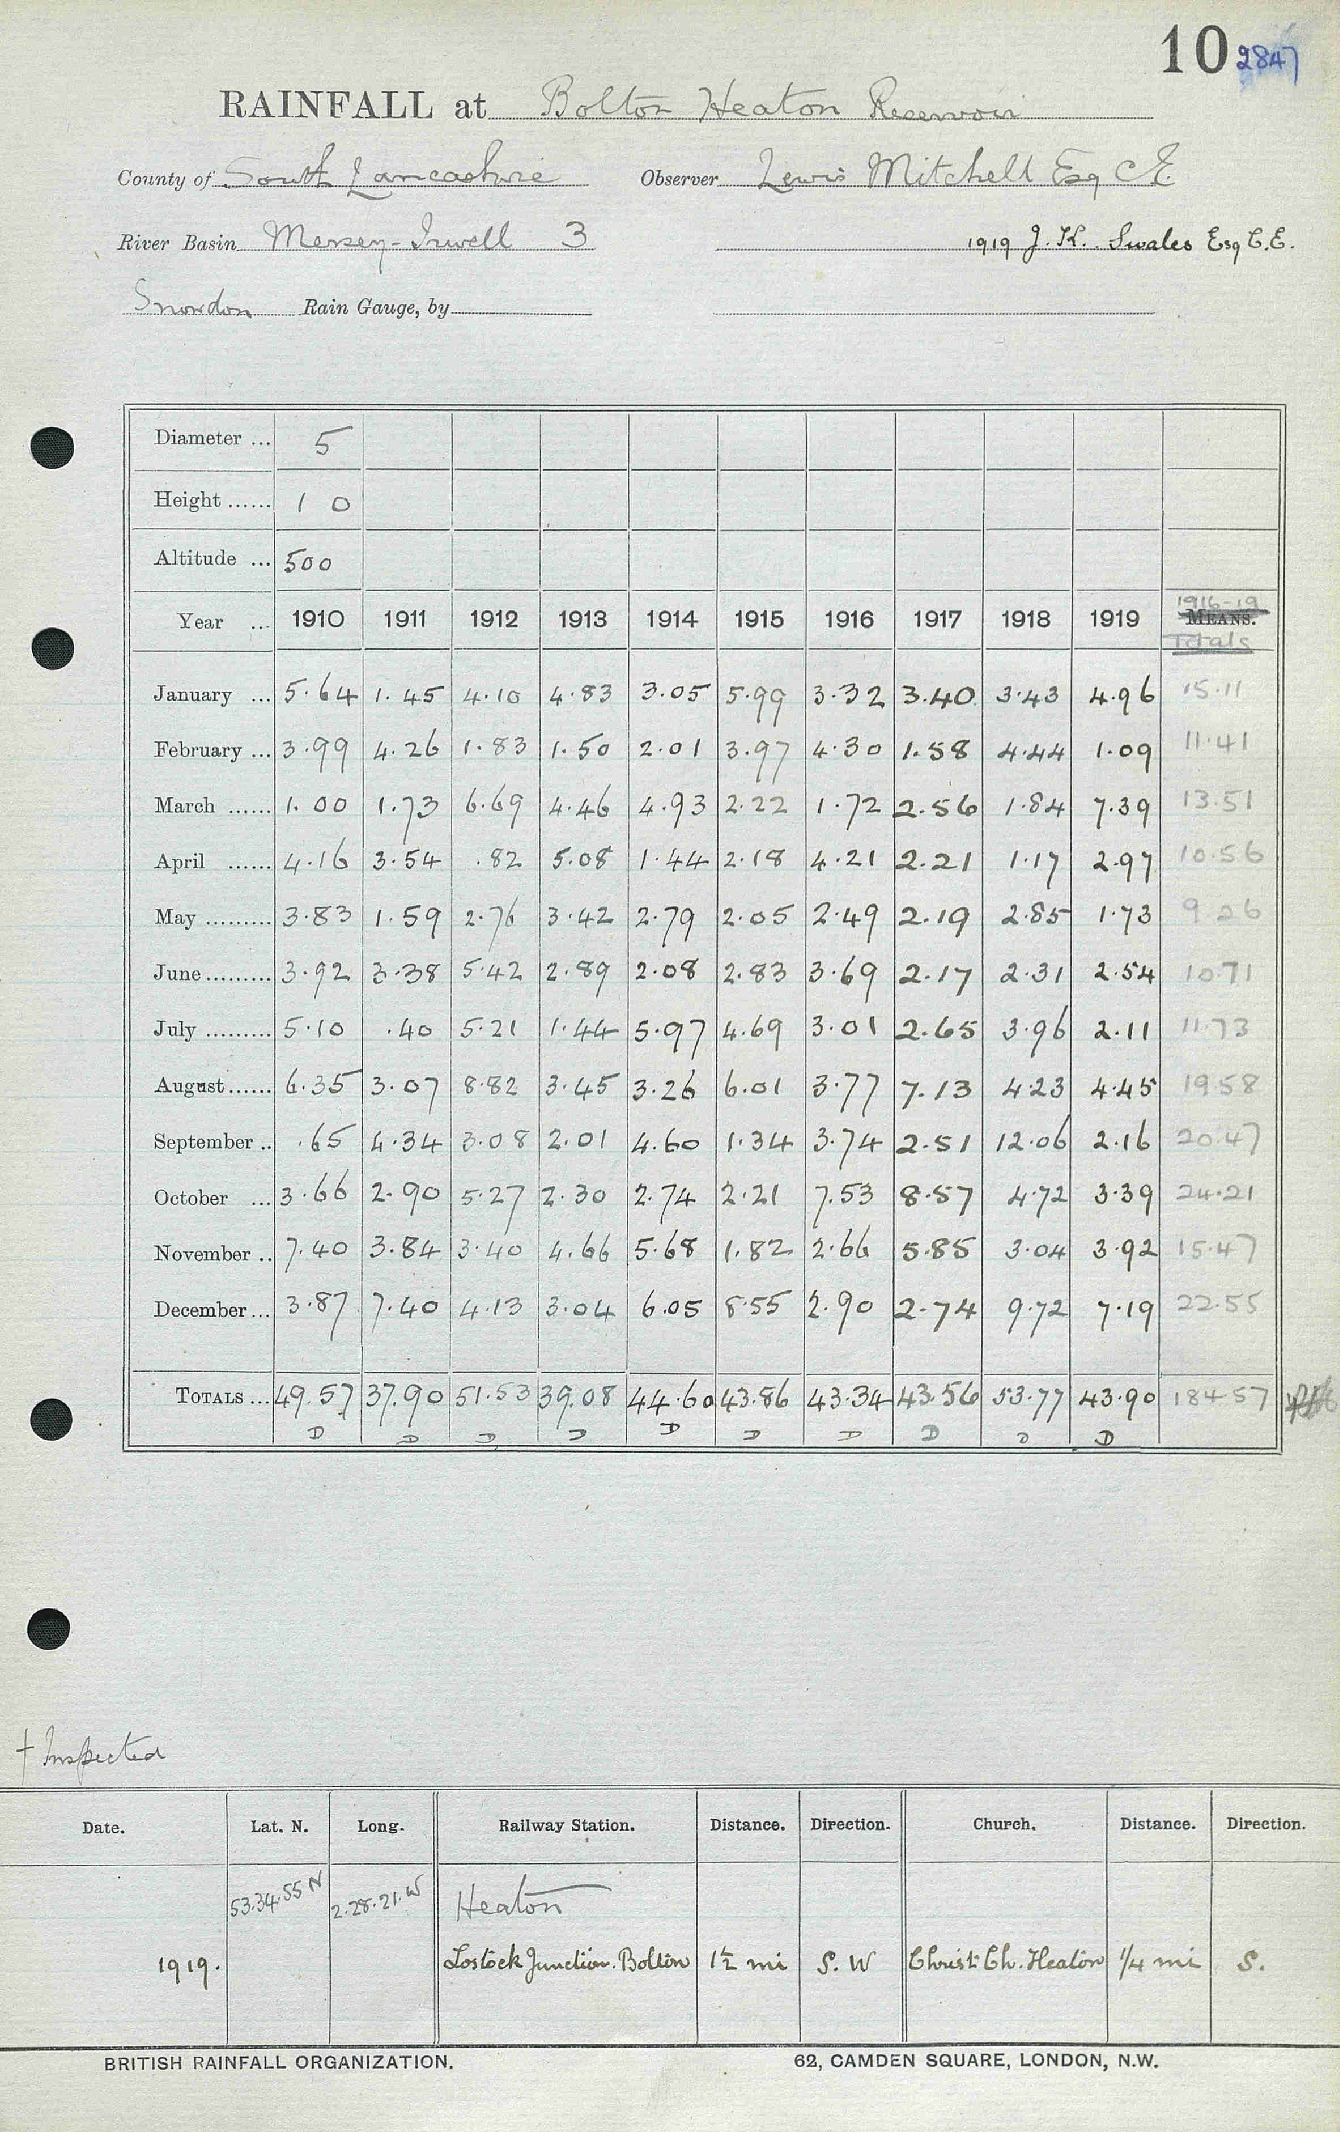 10 2847
RAINFALL at Bolton Heaton Reservoir
County of South Lancashire Observer Lewis Mitchell Esq C.E.
River Basin Mersey-Irwell 3 1919 J. K. Swales Esq C.E.
Snowdon Rain Gauge, by
Diameter ... 5
Height ...... 1 0
Altitude ... 500
1916-19
Year ... 1910 1911 1912 1913 1914 1915 1916 1917 1918 1919 MEANS.
Totals
January ... 5.64 1.45 4.10 4.83 3.05 5.99 3.32 3.40 3.43 4.96 15.11
February ... 3.99 4.26 1.83 1.50 2.01 3.97 4.30 1.58 4.44 1.09 11.41
March ...... 1.00 1.73 6.69 4.46 4.93 2.22 1.72 2.56 1.84 7.39 13.51
April ...... 4.16 3.54 .82 5.08 1.44 2.18 4.21 2.21 1.17 2.97 10.56
May ......... 3.83 1.59 2.76 3.42 2.79 2.05 2.49 2.19 2.85 1.73 9.26
June ......... 3.92 3.38 5.42 2.89 2.08 2.83 3.69 2.17 2.31 2.54 10.71
July ......... 5.10 .40 5.21 1.44 5.97 4.69 3.01 2.65 3.96 2.11 11.73
August ...... 6.35 3.07 8.82 3.45 3.26 6.01 3.77 7.13 4.23 4.45 19.58
September .. .65 4.34 3.08 2.01 4.60 1.34 3.74 2.51 12.06 2.16 20.47
October ... 3.66 2.90 5.27 2.30 2.74 2.21 7.53 8.57 4.72 3.39 24.21
November .. 7.40 3.84 3.40 4.66 5.68 1.82 2.66 5.85 3.04 3.92 15.47
December ... 3.87 7.40 4.13 3.04 6.05 8.55 2.90 2.74 9.72 7.19 22.55
TOTALS ... 49.57 37.90 51.53 39.08 44.60 43.86 43.34 43.56 53.77 43.90 184.57
D D D D D D D D D D
† Inspected
Date. Lat. N. Long. Railway Station. Distance. Direction. Church. Distance. Direction.
53.34.55 N 2.28.21.W Heaton
1919. Lostock Junction. Bolton 1½ mi S. W Christ Ch. Heaton ¼ mi S.
BRITISH RAINFALL ORGANIZATION. 62, CAMDEN SQUARE, LONDON, N.W.